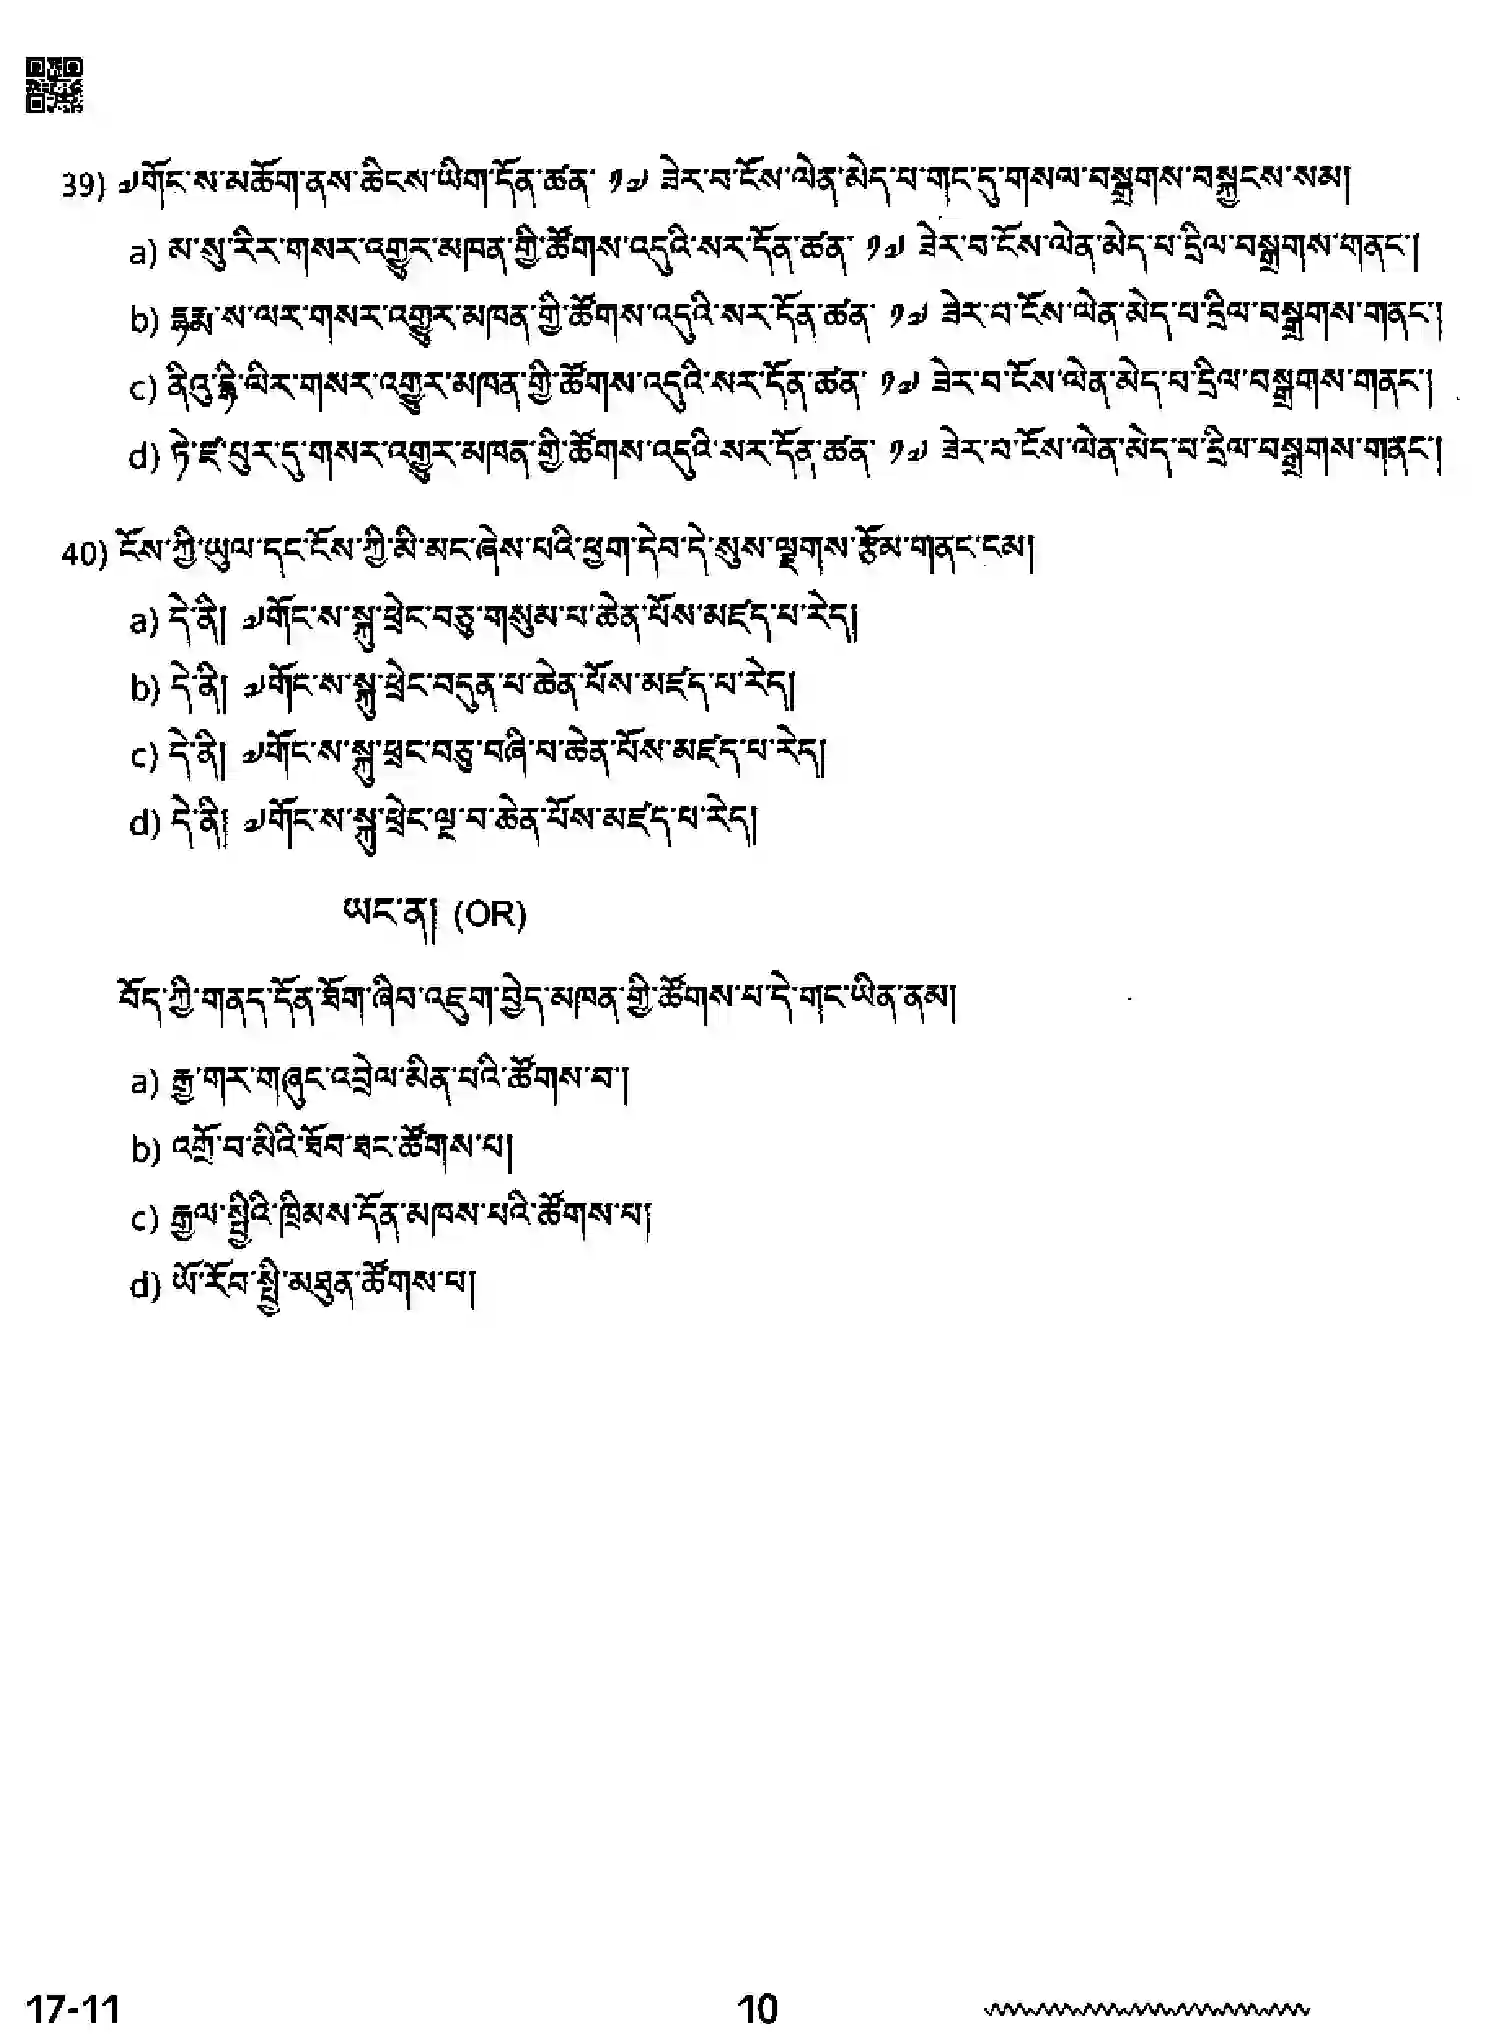 39) ༧གོང་ས་མཆོག་ནས་ཆིངས་ཡིག་དོན་ཚན་ ༡༧ ཟེར་བ་ངོས་ལེན་མེད་པ་གང་དུ་གསལ་བསྒྲགས་བསྐྱངས་སམ།
a) མ་སུ་རིར་གསར་འགྱུར་མཁན་གྱི་ཚོགས་འདུའི་སར་དོན་ཚན་ ༡༧ ཟེར་བ་ངོས་ལེན་མེད་པ་དྲིལ་བསྒྲགས་གནང་།
b) དྷརྨ་ས་ལར་གསར་འགྱུར་མཁན་གྱི་ཚོགས་འདུའི་སར་དོན་ཚན་ ༡༧ ཟེར་བ་ངོས་ལེན་མེད་པ་དྲིལ་བསྒྲགས་གནང་།
c) ནིའུ་རྡི་ལིར་གསར་འགྱུར་མཁན་གྱི་ཚོགས་འདུའི་སར་དོན་ཚན་ ༡༧ ཟེར་བ་ངོས་ལེན་མེད་པ་དྲིལ་བསྒྲགས་གནང་།
d) ཏེ་ཛ་པུར་དུ་གསར་འགྱུར་མཁན་གྱི་ཚོགས་འདུའི་སར་དོན་ཚན་ ༡༧ ཟེར་བ་ངོས་ལེན་མེད་པ་དྲིལ་བསྒྲགས་གནང་།
40) ངོས་ཀྱི་ཡུལ་དང་ངོས་ཀྱི་མི་མང་ཞེས་པའི་ཕྱག་དེབ་དེ་སུས་ལྗགས་རྩོམ་གནང་ངམ།
a) དེ་ནི། ༧གོང་ས་སྐུ་ཕྲེང་བཅུ་གསུམ་པ་ཆེན་པོས་མཛད་པ་རེད།
b) དེ་ནི། ༧གོང་ས་སྐུ་ཕྲེང་བདུན་པ་ཆེན་པོས་མཛད་པ་རེད།
c) དེ་ནི། ༧གོང་ས་སྐུ་ཕྲང་བཅུ་བཞི་པ་ཆེན་པོས་མཛད་པ་རེད།
d) དེ་ནི། ༧གོང་ས་སྐུ་ཕྲེང་ལྔ་བ་ཆེན་པོས་མཛད་པ་རེད།
ཡང་ན། (OR)
བོད་ཀྱི་གནད་དོན་ཐོག་ཞིབ་འཇུག་བྱེད་མཁན་གྱི་ཚོགས་པ་དེ་གང་ཡིན་ནམ།
a) རྒྱ་གར་གཞུང་འབྲེལ་མིན་པའི་ཚོགས་པ།
b) འགྲོ་བ་མིའི་ཐོབ་ཐང་ཚོགས་པ།
c) རྒྱལ་སྤྱིའི་ཁྲིམས་དོན་མཁས་པའི་ཚོགས་པ།
d) ཡོ་རོབ་སྤྱི་མཐུན་ཚོགས་པ།
17-11 10